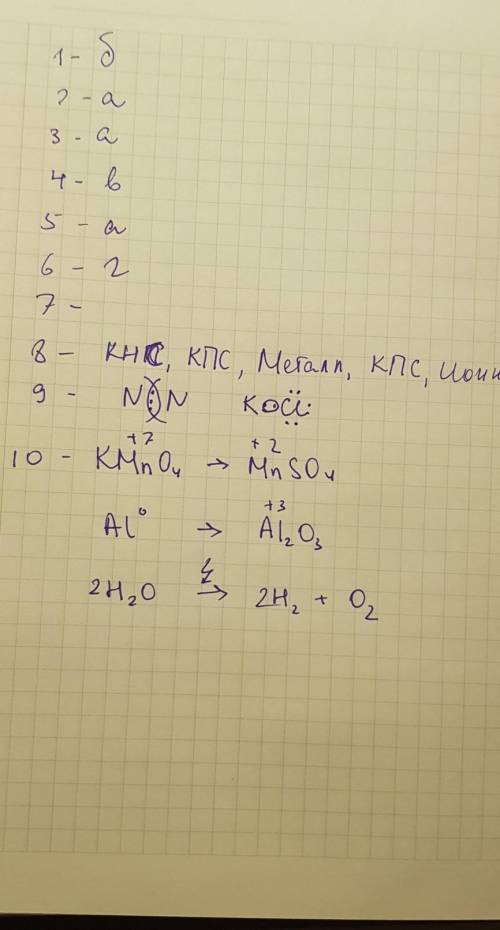 1 - б
2 - а
3 - а
4 - в
5 - а
6 - г
7 -
8 - КНС, КПС, Металл, КПС, Ионн
9 - N⋮N K Cl
10 - KMn⁺⁷O₄ → Mn⁺²SO₄
Al⁰ → Al₂⁺³O₃
2H₂O → 2H₂ + O₂